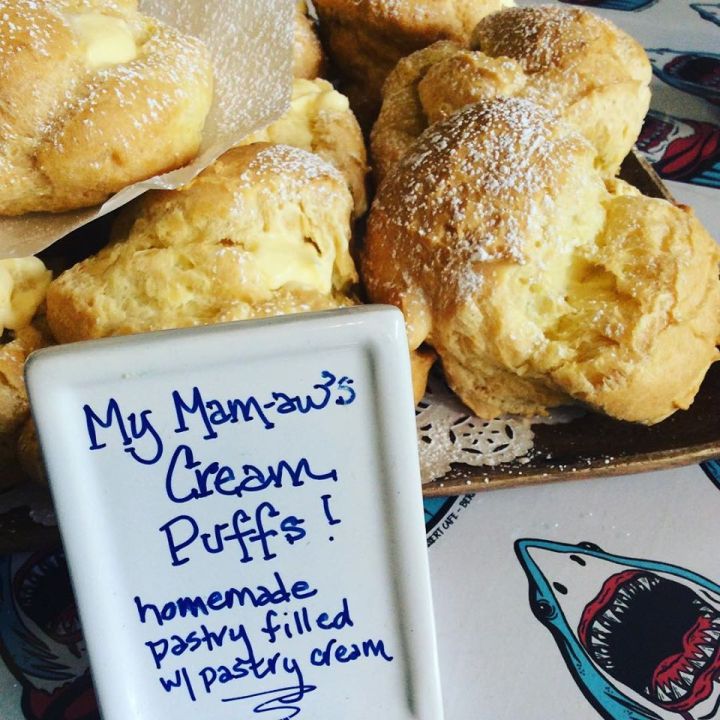 My Mam-aw's
Cream
Puffs!
homemade
pastry filled
w/ pastry cream